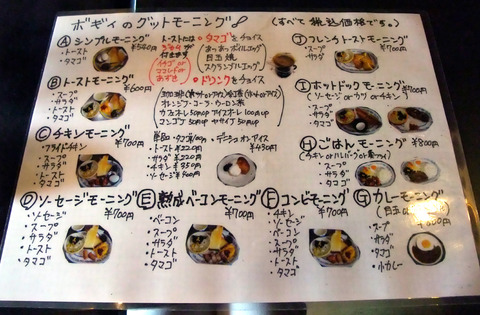 ボギィのグットモーニング♪
(すべて税込価格です。)
Ⓐシンプルモーニング
・トースト ¥500
・タマゴ
トーストには
ジャムが
付きます
イチゴ or
ママレード or
あずき
タマゴをチョイス
あつあつボイルエッグ
目玉焼
スクランブルエッグ
ドリンクをチョイス
オレンジ・コーラ・ウーロン茶
カフェオレ50円up アイスオーレ100円up
マンゴ 50円up ヤサイ
Ⓑトーストモーニング
・スープ ¥600
・サラダ
・トースト
・タマゴ
Ⓒチキンモーニング
・フライドチキン ¥700
・スープ
・サラダ
・トースト
・タマゴ
単品・タマゴ/100円
・トースト¥220円
・サラダ ¥220円
・チキン ¥350円
・ソーセージ
・デニッシュオンアイス
¥430円
Ⓙフレンチトーストモーニング
・スープ ¥700
・サラダ
Ⓘホットドックモーニング
ソーセージ or カツ or チキン
・スープ ¥700
・サラダ
・タマゴ
Ⓗごはんモーニング
¥800
・スープ
・サラダ
・タマゴ
Ⓓソーセージモーニング
・ソーセージ ¥700
・スープ
・サラダ
・トースト
・タマゴ
Ⓔ熟成ベーコンモーニング
・ベーコン ¥700
・スープ
・サラダ
・トースト
・タマゴ
Ⓕコンビモーニング
・チキン ¥700
・ソーセージ
・ベーコン
・スープ
・サラダ
・トースト
・タマゴ
Ⓖカレーモーニング
・スープ
・サラダ
・タマゴ
・小カレー